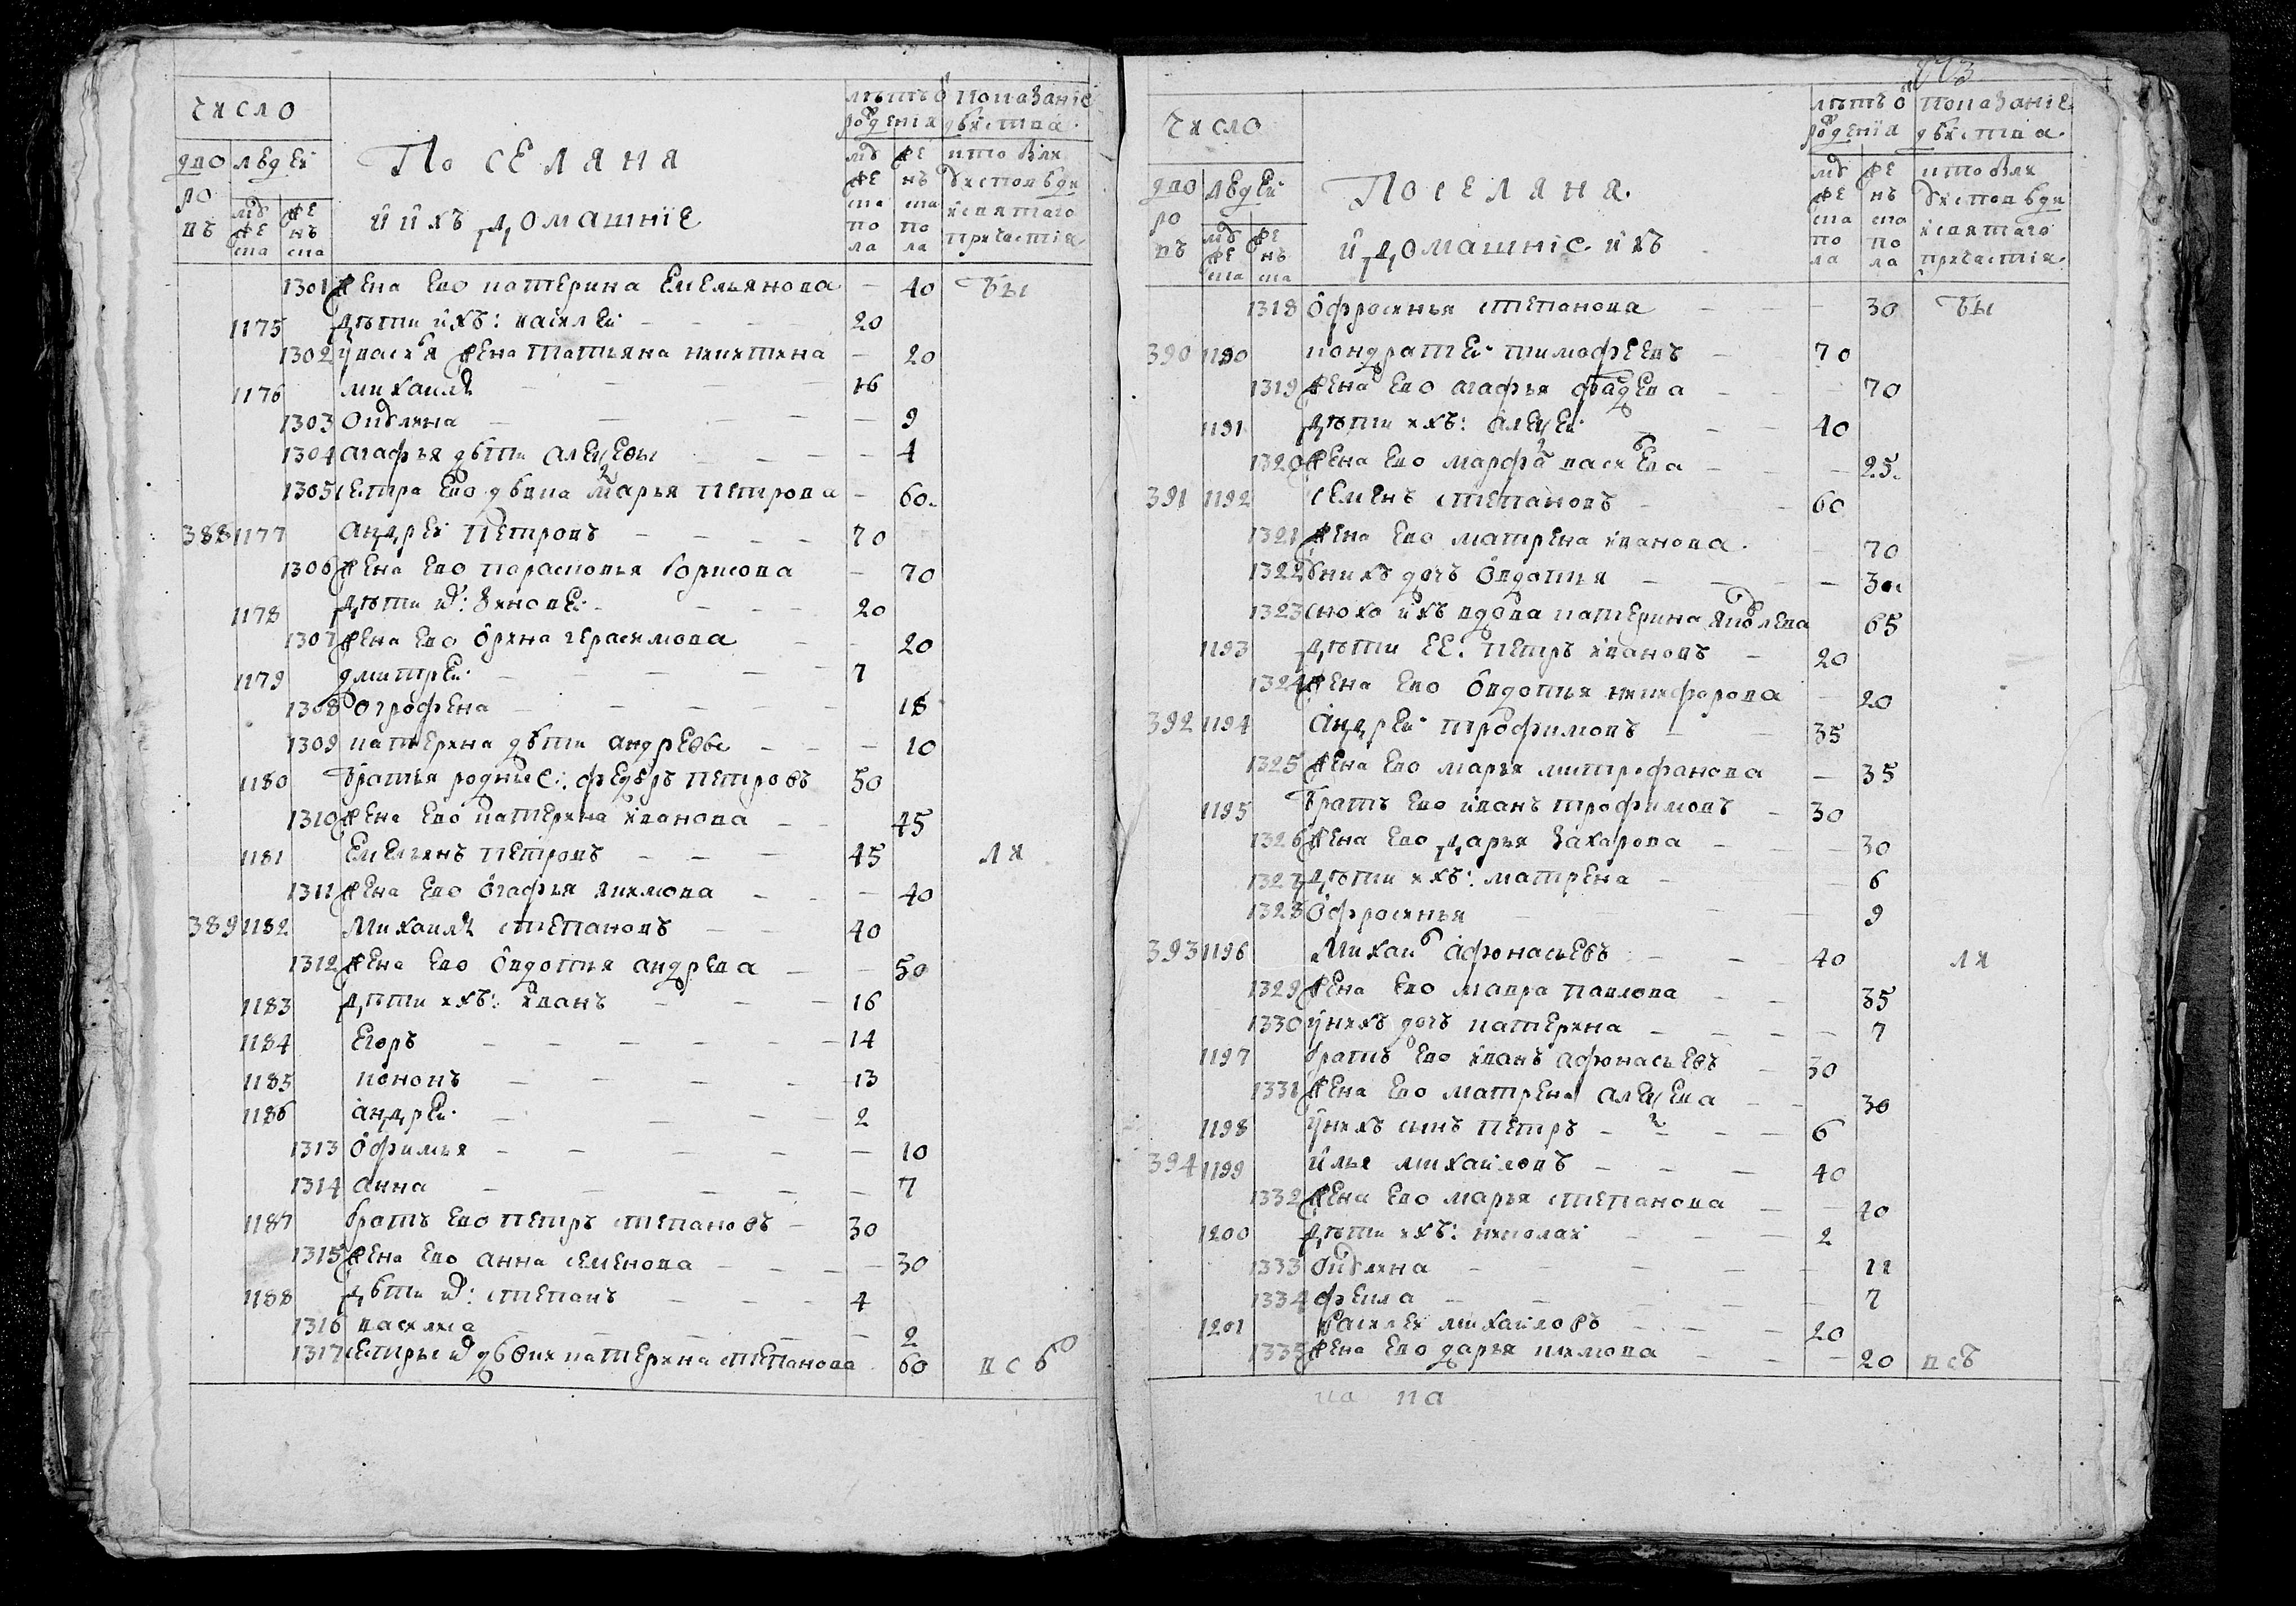 число
дворовъ
людей
муже ска
жен ска
Поселяня
и ихъ домашние
лѣтъ ѿ рождения
муже ска пола
женъ ска пола
показание дѣиства
кто был у исповѣди и святаго причастия
1301 жена ево катерина Емельянова — 40 бы
1175 дѣти ихъ: василеи 20
1302 у васил жена татьяна никитина — 20
1176 михаила 16
1303 окулина — 9
1304 агафья дѣти алексевы — 4
1305 сестра ево дѣвка марья петрова — 60
388 1177 андреи петровъ 70
1306 жена ево парасковья борисова — 70
1178 дѣти их: зиновеи 20
1307 жена ево орина герасимова — 20
1179 дмитреи 7
1308 огрофена 18
1309 катерина дѣти андревы — 10
1180 братья родные: федеръ петровъ 50
1310 жена ево катерина иванова 45
1181 Емельянъ петровъ 45 ли
1311 жена ево огафья якимова — 40
389 1182 михаила степановъ 40
1312 жена ево овдотья андрева — 50
1183 дѣти ихъ: иванъ 16
1184 Егоръ 14
1185 кононъ 13
1186 андреи 2
1313 офимья — 10
1314 анна — 7
1187 братъ ево петръ степановъ 30
1315 жена ево анна семенова — 30
1188 дѣти их: степанъ 4
1316 василиса — 2
1317 сестры их дѣвки катерина степанова 60 всѣ
173
число
дворовъ
людей
муже ска
жен ска
Поселяня
и домашние ихъ
лѣтъ ѿ рождения
муже ска пола
женъ ска пола
показание дѣиства
кто был у исповѣди и святаго причастия
1318 офросинья степанова — 30 бы
390 1190 кондратеи тимофѣевъ 70
1319 жена ево агафья фадева — 70
1191 дѣти ихъ: алексеи 40
1320 жена ево марфа василева — 25
391 1192 семенъ степановъ 60
1321 жена ево матрена иванова — 70
1322 у нихъ дочъ овдотья — 30
1323 сноха ихъ вдова катерина яковлева 65
1193 дѣти ее: петръ ивановъ 20
1324 жена ево овдотья никифорова — 20
392 1194 андреи трофимовъ 35
1325 жена ево марья митрофанова — 35
1195 братъ ево иванъ трофимовъ 30
1326 жена ево дарья захарова — 30
1327 дѣти ихъ: матрена — 6
1328 офросинья — 9
393 1196 михаил афонасьевъ 40 ли
1329 жена ево мавра павлова 35
1330 у нихъ дочъ катерина — 7
1197 братъ ево иванъ афонасьевъ 30
1331 жена ево матрена алексева 30
1198 у нихъ сынъ петръ 6
394 1199 илья михаиловъ 40
1332 жена ево марья степанова — 40
1200 дѣти ихъ: николаи 2
1333 окулина — 11
1334 фекла — 7
1201 василеи михаиловъ 20
1335 жена ево дарья икмова — 20 всѣ